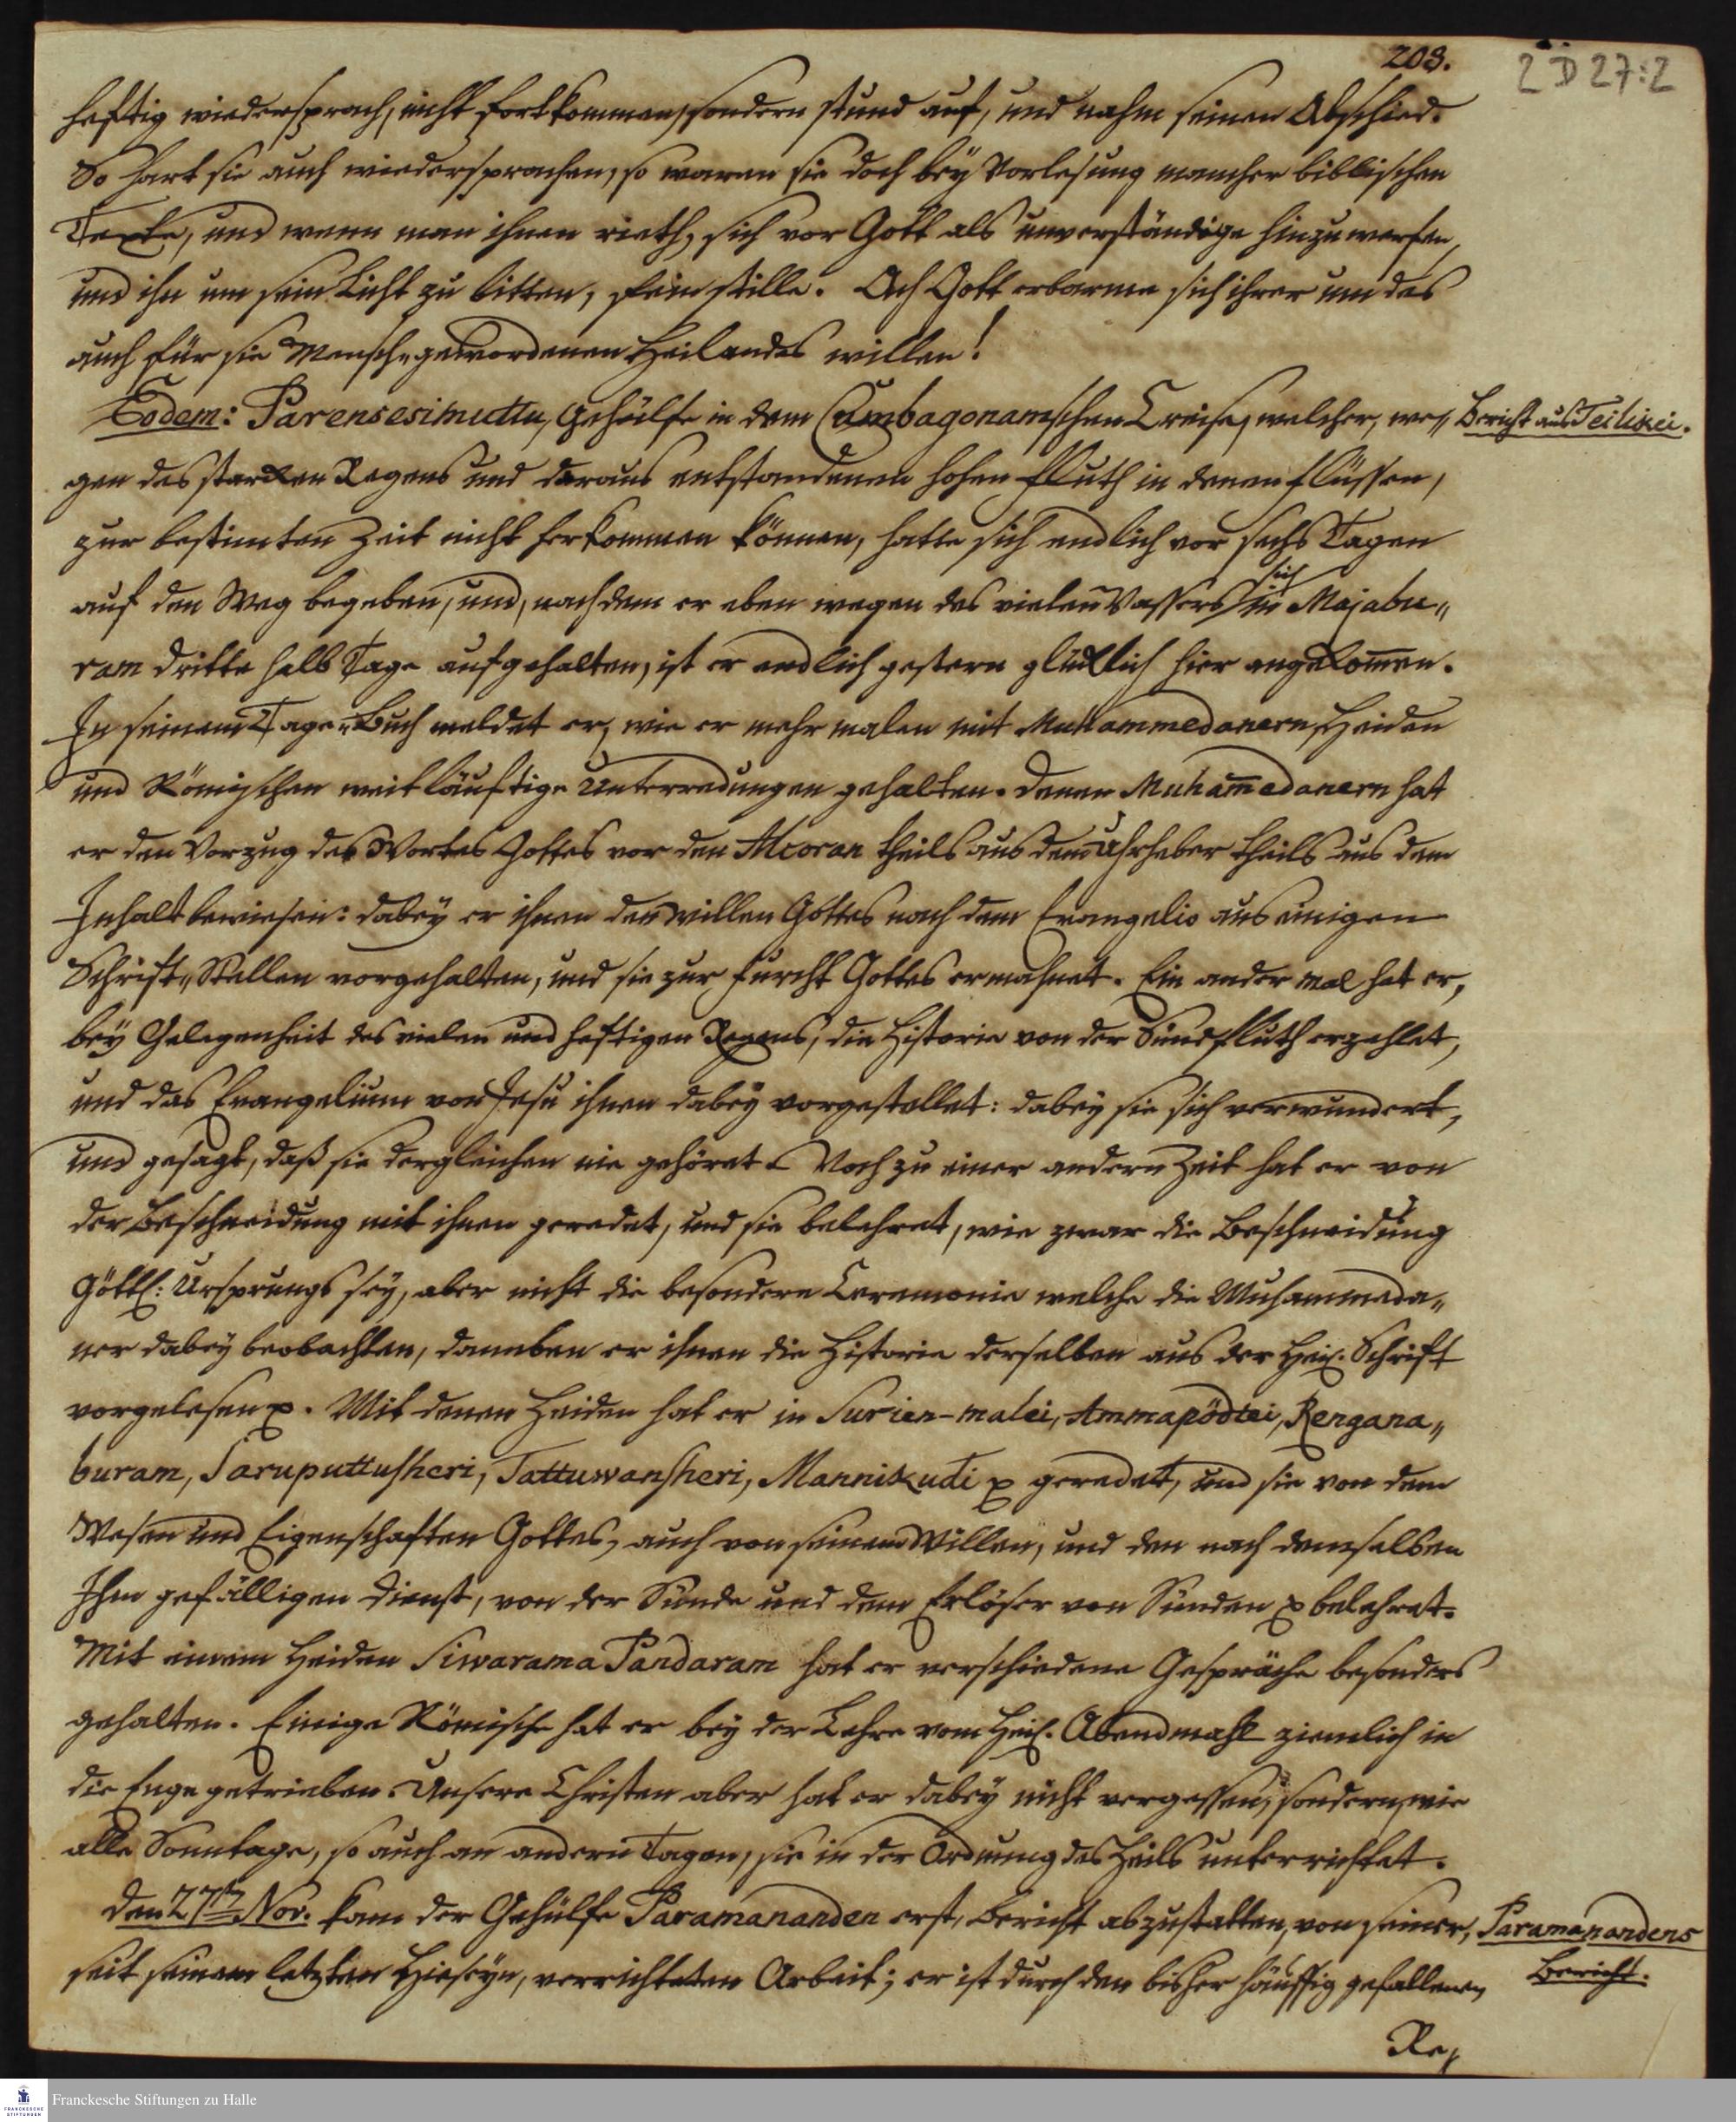 203.
2 D 27:2
heftig wiedersprach, nicht fortkommen, sondern stund auf, und nahm seinen Abschied.
So hart sie auch wiedersprachen, so waren sie doch bey Vorlesung mancher biblischen
Texte, und wenn man ihnen rieth, sich vor Gott als unverständige hinzuwerfen,
und ihn um sein Licht zu bitten, fein stille. Ach Gott erbarme sich ihrer um des
auch für sie Mensch„gewordenen Heilandes willen!
Eodem: Parensesimuttu, Gehülfe in dem Cumbagonamschen Creise, welcher, we„
Bericht aus Teilikei.
gen des starken Regens und daraus entstandenen hohen Fluth in denen Flüssen,
zur bestimten Zeit nicht herkommen können, hatte sich endlich vor sechs Tagen
auf den Weg begeben, und, nachdem er eben wegen des vielen Wassers sich in Majabu„
ram dritte halb Tage aufgehalten, ist er endlich gestern glücklich hier angekom̅en.
In seinem Tage„Buch meldet er, wie er mehrmalen mit Muhammedanern, Heiden
und Römischen weitläuftige Unterredungen gehalten. Denen Muham̅edanern hat
er den Vorzug des Wortes Gottes vor den Alcoran theils aus dem Uhrheber theils aus dem
Inhalt bewiesen: dabey er ihnen den Willen Gottes nach dem Evangelio aus einigen
Schrift„Stellen vorgehalten, und sie zur Furcht Gottes ermahnet. Ein ander mal hat er,
bey Gelegenheit des vielen und heftigen Regens, die Historie von der Sündfluth erzehlet,
und das Evangelium von Jesu ihnen dabey vorgestellet: dabey sie sich verwundert,
und gesagt, daß sie dergleichen nie gehöret. Noch zu einer andern Zeit hat er von
der Beschneidung mit ihnen geredet, und sie belehret, wie zwar die Beschneidung
Göttl: Ursprungs sey, aber nicht die besondere Ceremonie welche die Muhammeda„
ner dabey beobachten, daneben er ihnen die Historie derselben aus der Heil. Schrift
vorgelesen p. Mit denen Heiden hat er in Surien-malei, Ammapödtei, Rengana„
buram, Saruputtusheri, Tattuwansheri, Mannikudi p geredet, und sie von dem
Wesen und Eigenschaften Gottes, auch von seinem Willen, und den nach demselben
Ihm gefälligen Dienst, von der Sünde und dem Erlöser von Sünden p belehret.
Mit einem Heiden Siwarama Pandaram hat er verschiedene Gespräche besonders
gehalten. Einige Römische hat er bey der Lehre vom Heil. Abendmahl ziemlich in
die Enge getrieben. Unsere Christen aber hat er dabey nicht vergessen, sondern, wie
alle Sonntage, so auch an andern Tagen, sie in der Ordnung des Heils unterrichtet.
Den 27ten Nov. kam der Gehülfe Paramananden erst, Bericht abzustatten, von seiner,
Paramanandens
Bericht.
seit seinem letzten Hieseyn, verrichteten Arbeit; er ist durch den bisher häuffig gefallenen
Re„
Franckesche Stiftungen zu Halle
FRANCKESCHE
STIFTUNGEN